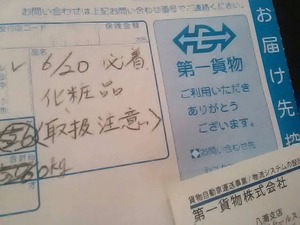 お問い合わせは上記お問い合わせ番号でご連絡ください。
保険金額
品名
6/20 必着
化粧品
(取扱注意)
第一貨物
ご利用いただき
ありがとう
ございます。
お問い合わせ先
お届け先控
貨物自動車運送事業/物流システムの設計
第一貨物株式会社
八潮支店